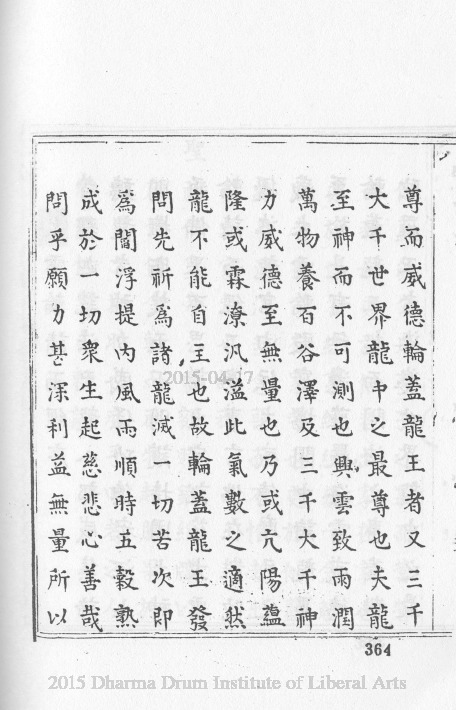 尊而威德輪蓋龍王者又三千
大千世界龍中之最尊也夫龍
至神而不可測也興雲致雨潤
萬物養百谷澤及三千大千神
力威德至無量也乃或亢陽蘊
隆或霖潦汎溢此氣數之適然
龍不能自主也故輪蓋龍王發
問先祈為諸龍滅一切苦次即
為閻浮提內風雨順時五穀熟
成於一切眾生起慈悲心善哉
問乎願力甚深利益無量所以
364
2015-04-17
2015 Dharma Drum Institute of Liberal Arts